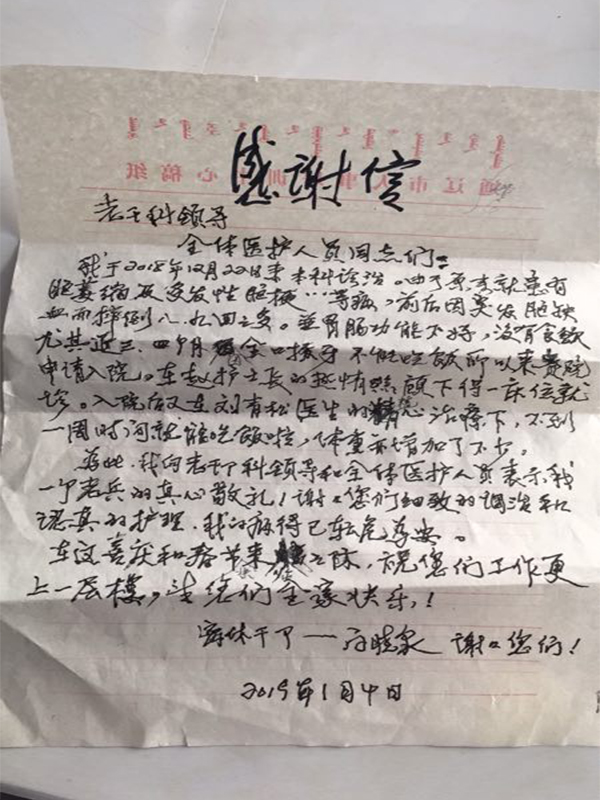 感谢信
老干科领导
全体医护人员同志们：
我于2018年12月22日来本科诊治。由于原来就患有
脑萎缩及多发性脑梗…等症，前后因突发脑缺
血而摔倒八、九回之多。并胃肠功能不好，没有食欲
尤其近三、四个月 不能吃饭所以来贵院
申请入院。在赵护士长的热情照顾下得一床位就
诊。入院后又在刘有松医生的精心治疗下，不到
一周时间就能吃饭啦，体重亦增加了不少。
为此，我向老干科领导和全体医护人员表示我
一个老兵的真心敬礼！谢谢您们细致的调治和
认真的护理，我的病得已转危为安。
在这喜庆和春节来临之际，祝您们工作更
上一层楼，望您们全家快乐！
离休干部——晓泉 谢谢您们！
2019年1月4日